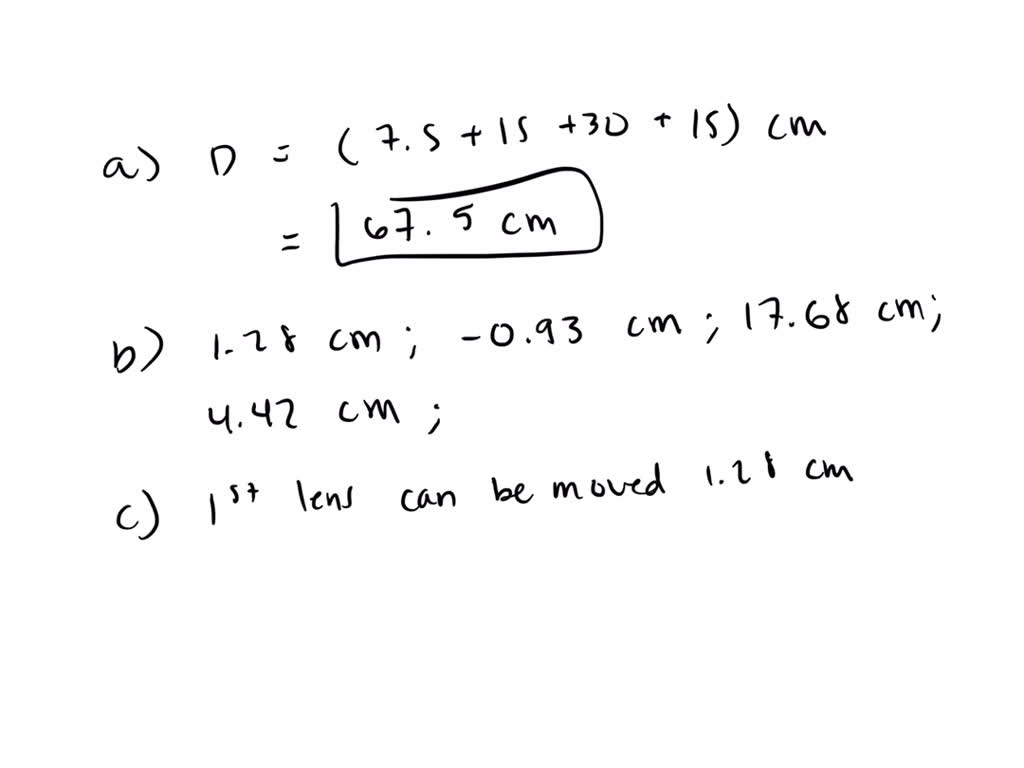 a) D = (7.5 + 15 + 30 + 15) cm
= 67.5 cm
b) 1.28 cm ; -0.93 cm ; 17.68 cm;
4.42 cm ;
c) 1st lens can be moved 1.28 cm